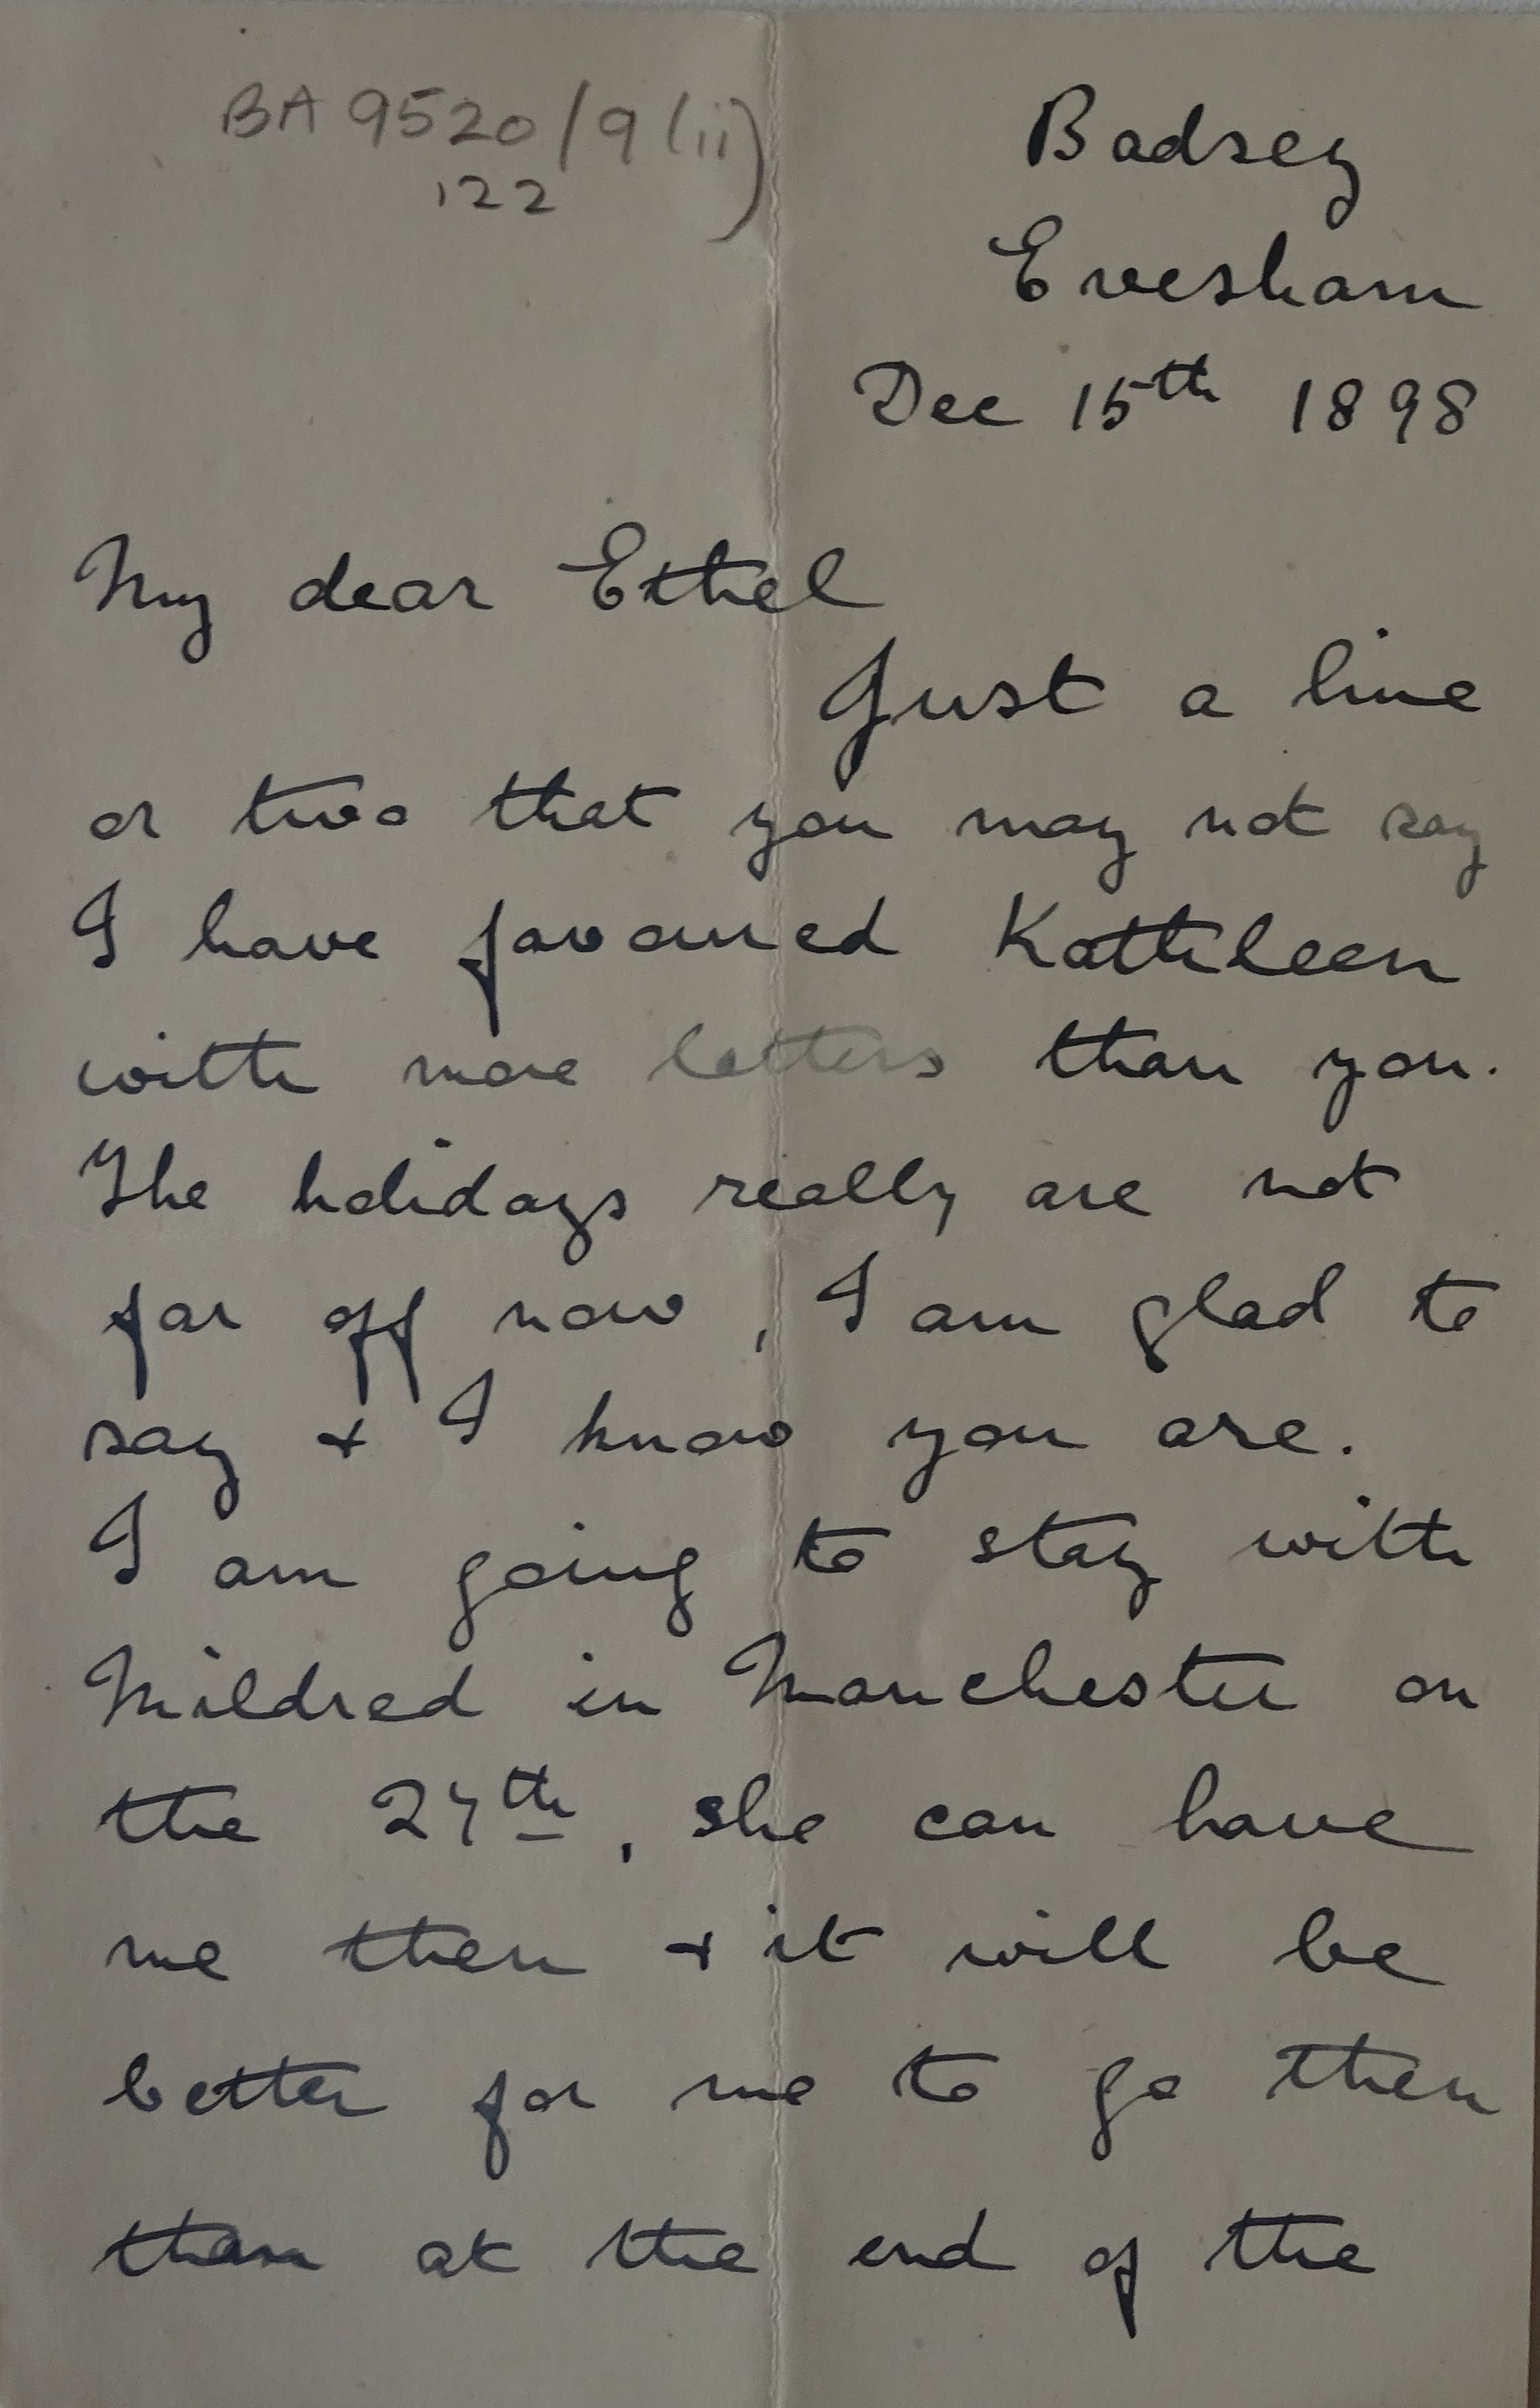 BA 9520/9(ii)
122
Badsey
Evesham
Dec 15th 1898
My dear Ethel
Just a line
or two that you may not say
I have favoured Kathleen
with more letters than you.
The holidays really are not
far off now, I am glad to
say & I know you are.
I am going to stay with
Mildred in Manchester on
the 27th, she can have
me then & it will be
better for me to go then
than at the end of the